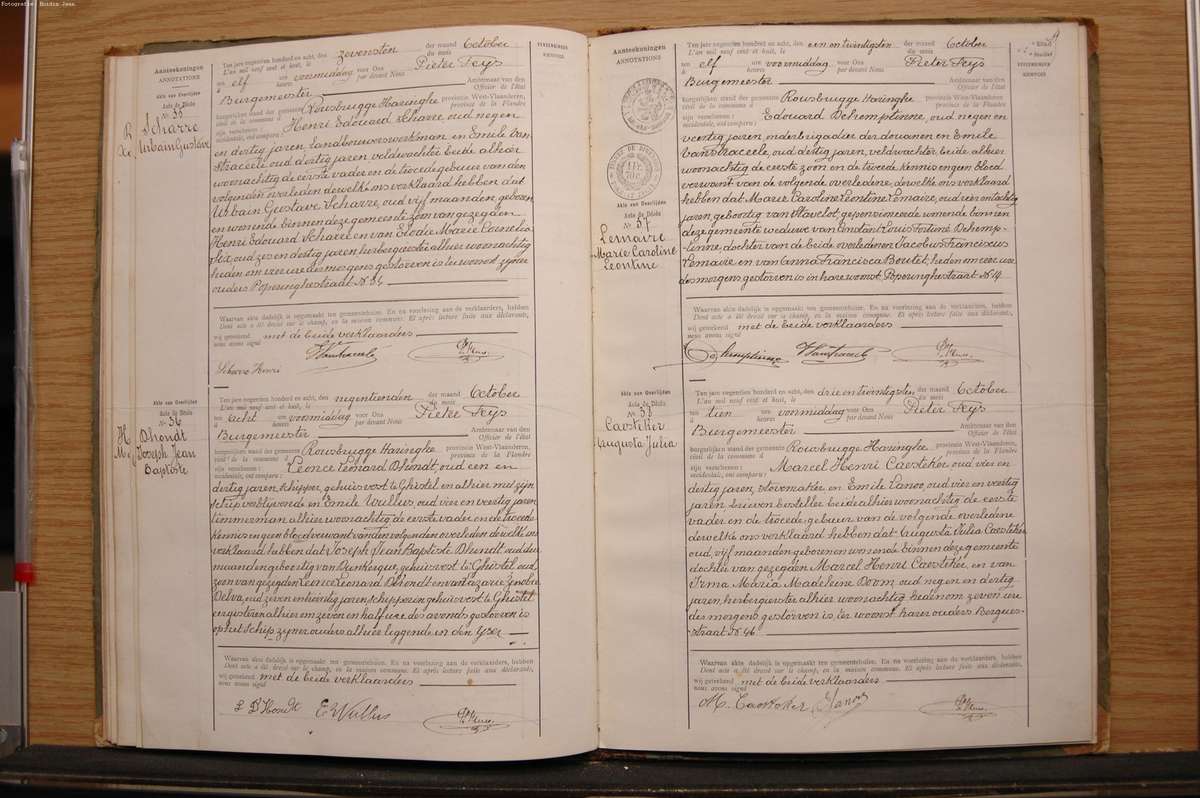 Fotografie: Boidin Jean
Aanteekeningen
ANNOTATIONS
Akte van Overlijden
Acte de Décès
N° 35
Scharre
Urbain Gustave
Ten jare negentien honderd en acht, den zevensten der maand October
L'an mil neuf cent et huit, le du mois
ten elf ure voormiddag voor Ons Pieter Feys
à heures par devant Nous
Burgemeester Ambtenaar van den
Officier de l'état
burgerlijken stand der gemeente Rousbrugge Haringhe provincie West-Vlaanderen,
civil de la commune d province de la Flandre
zijn verschenen: Henri Edouard Scharre, oud negen
occidentale, ont comparu:
en dertig jaren, landbouwerswerkman, en Emile Van
Straceele, oud dertig jaren, veldwachter beide alhier
woonachtig de eerste vader en de tweede gebuur van den
volgenden overleden dewelke ons verklaard hebben dat
Urbain Gustave Scharre, oud vijf maanden, geboren
en wonende binnen deze gemeente zoon van gezegden
Henri Edouard Scharre en van Elodie Marie Cornelia
oud zes en dertig jaren, herbergierster alhier woonachtig
heden om vier ure des morgens gestorven is te woonst zijner
ouders Poperinghestraat N° 84
Waarvan akte dadelijk is opgemaakt ten gemeentehuize. En na voorlezing aan de verklaarders, hebben
Dont acte a été dressé sur le champ, en la maison commune. Et après lecture faite aux déclarants,
wij geteekend met de beide verklaarders
nous avons signé
Scharre Henri
Akte van Overlijden
Acte de Décès
N° 36
Dhondt
Joseph Jean
Baptiste
Ten jare negentien honderd en acht, den negentienden der maand October
L'an mil neuf cent et huit, le du mois
ten acht ure voormiddag voor Ons Pieter Feys
à heures par devant Nous
Burgemeester Ambtenaar van den
Officier de l'état
burgerlijken stand der gemeente Rousbrugge Haringhe provincie West-Vlaanderen,
civil de la commune d province de la Flandre
zijn verschenen: Leonce Léonard Dhondt, oud een en
occidentale, ont comparu:
dertig jaren, schipper, gehuisvest te Ghistel en alhier met zijn
schip verblijvende en Emile Wullus, oud vier en veertig jaren
timmerman, alhier woonachtig de eerste vader en de tweede
kennis en geen bloedverwant van den volgenden overleden dewelke ons
verklaard hebben dat Joseph Jean Baptiste Dhondt, oud
maanden geboortig van Dunkerque, gehuisvest te Ghistel,
zoon van gezegden Leonce Leonard Dhondt en van Lazarie Zenobie
Delva, oud zeven en twintig jaren, schipperin gehuisvest te Ghistel
eergisteren alhier om zeven en half ure des avonds gestorven is
op het schip zijner ouders alhier leggende in den Yser
Waarvan akte dadelijk is opgemaakt ten gemeentehuize. En na voorlezing aan de verklaarders, hebben
Dont acte a été dressé sur le champ, en la maison commune. Et après lecture faite aux déclarants,
wij geteekend met de beide verklaarders
nous avons signé
L D'Hondt E Wullus
Aanteekeningen
ANNOTATIONS
Akte van Overlijden
Acte de Décès
N° 37
Lemaire
Marie Caroline
Leontine
Ten jare negentien honderd en acht, den een en twintigsten der maand October
L'an mil neuf cent et huit, le du mois
ten elf ure voormiddag voor Ons Pieter Feys
à heures par devant Nous
Burgemeester Ambtenaar van den
Officier de l'état
burgerlijken stand der gemeente Rousbrugge Haringhe provincie West-Vlaanderen,
civil de la commune d province de la Flandre
zijn verschenen: Edouard Dehemptienne, oud negen en
occidentale, ont comparu:
veertig jaren, onderbrigadier der douanen en Emile
Van Straceele, oud dertig jaren, veldwachter beide alhier
woonachtig de eerste zoon en de tweede kennis en geen bloed
verwant van de volgende overledene, dewelke ons verklaard
hebben dat Marie Caroline Leontine Lemaire, oud vier en tachtig
jaren, geboortig van Stavelot, gepensioneerde wonende binnen
deze gemeente weduwe van Constant Louis Fortuné Dehemp-
tinne dochter van de beide overledenen Jacobus Franciscus
Lemaire en van Anna Francisca Boutet, heden om vier ure
des morgens gestorven is in hare woonst, Poperinghestraat N° 14
Waarvan akte dadelijk is opgemaakt ten gemeentehuize. En na voorlezing aan de verklaarders, hebben
Dont acte a été dressé sur le champ, en la maison commune. Et après lecture faite aux déclarants,
wij geteekend met de beide verklaarders
nous avons signé
Akte van Overlijden
Acte de Décès
N° 38
Caesteker
Augusta Julia
Ten jare negentien honderd en acht, den drie en twintigsten der maand October
L'an mil neuf cent et huit, le du mois
ten tien ure voormiddag voor Ons Pieter Feys
à heures par devant Nous
Burgemeester Ambtenaar van den
Officier de l'état
burgerlijken stand der gemeente Rousbrugge Haringhe provincie West-Vlaanderen,
civil de la commune d province de la Flandre
zijn verschenen: Marcel Henri Caesteker oud vier en
occidentale, ont comparu:
dertig jaren, stovemaker en Emile Lanoo, oud vier en veertig
jaren, brievenbesteller beide alhier woonachtig de eerste
vader en de tweede gebuur van de volgende overledene
dewelke ons verklaard hebben dat Augusta Julia Caesteker
oud vijf maanden geboren en wonende binnen deze gemeente
dochter van gezegden Marcel Henri Caesteker, en van
Irma Maria Madeleine Doom, oud negen en dertig
jaren, herbergierster alhier woonachtig heden om zeven ure
des morgens gestorven is, ter woonst harer ouders Bergues-
straat N° 46
Waarvan akte dadelijk is opgemaakt ten gemeentehuize. En na voorlezing aan de verklaarders, hebben
Dont acte a été dressé sur le champ, en la maison commune. Et après lecture faite aux déclarants,
wij geteekend met de beide verklaarders
nous avons signé
M. Caesteker Lanoo